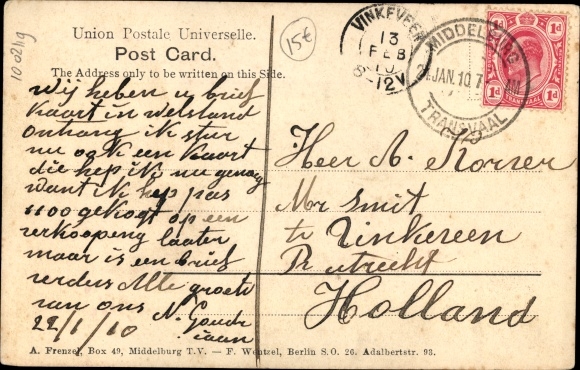 Union Postale Universelle.
Post Card.
The Address only to be written on this Side.
15€
10 02 49
VINKEVEEN
13
FEB
10
8-12V
MIDDELBURG
JAN. 10. 7
TRANSVAAL
1d 1d
TRANSVAAL
Wij heben u brief
kaart in welstand
onthang ik stur
nu ook een kaart
die hep ik nu genoeg
want ik hep pas
1100 gekogt op een
verkoopeng laater
maar is een brief
verders Alle groete
van ons N. Goude
22/1/10
Heer A. Korver
Mr Smit
te Vinkeveen
Pr utrecht
Holland
A. Frenzel, Box 49, Middelburg T.V. — F. Wentzel, Berlin S.O. 26. Adalbertstr. 93.